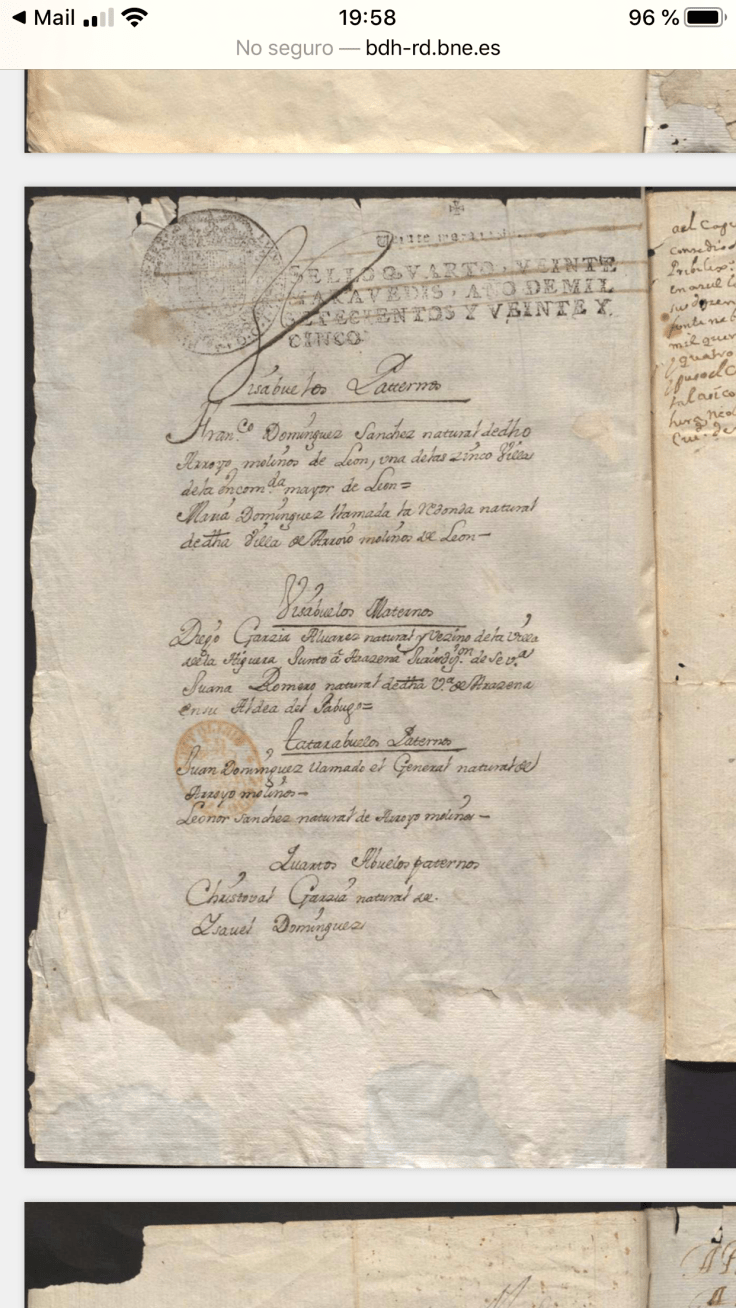 Mail
19:58
96 %
No seguro — bdh-rd.bne.es
SELLO QVARTO, VEINTE
MARAVEDIS, AÑO DE MIL
SETECIENTOS Y VEINTE Y
CINCO
Visabuelos Paternos
Fran.co Dominguez Sanchez natural dedho
Arroyo molinos de Leon, vna delas zinco Villas
dela encom.da mayor de Leon=
Maria Dominguez llamada la redonda natural
dedha Villa de Arroio molinos de Leon—
Visabuelos Maternos
Diego Garzia Aluarez natural y Vezino dela Villa
dela Higuera Junto â Arazena de Sev.a
Juana Romero natural dedha V.a de Arazena
ensu Aldea del Jabugo=
tatarabuelos Paternos
Juan Dominguez llamado el General natural de
Arroyo molinos—
Leonor Sanchez natural de Arroyo molinos—
Quartos Abuelos paternos
Christoval Garzia natural de.
Ysauel Dominguez